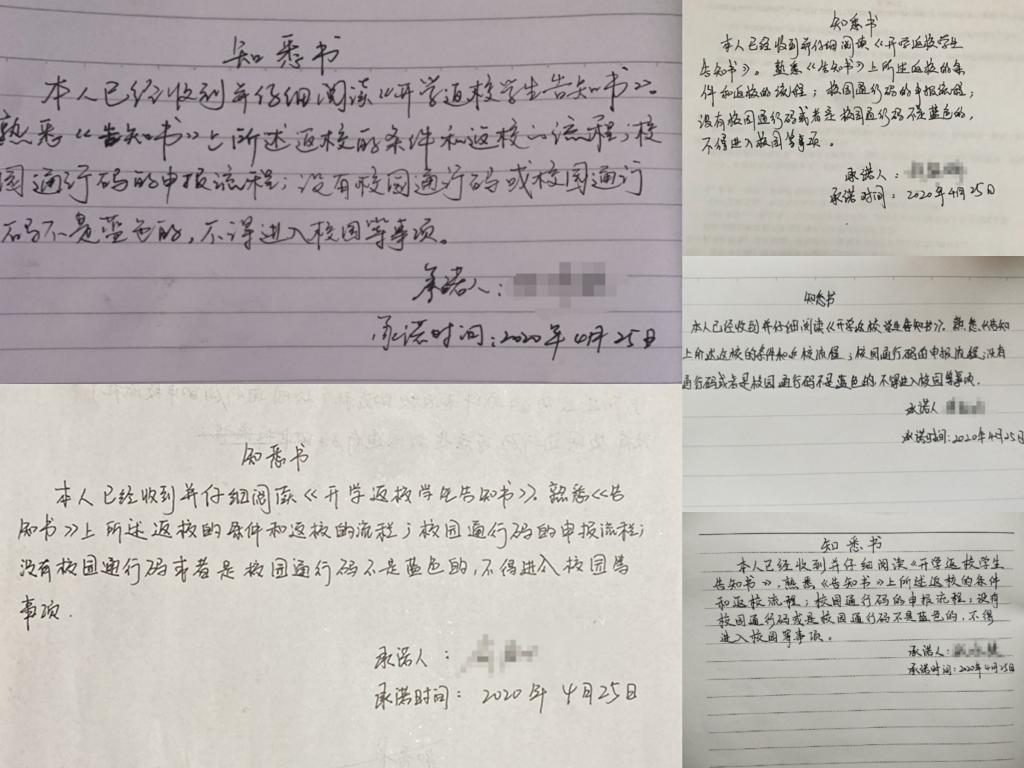 知悉书
本人已经收到并仔细阅读《开学返校学生告知书》。
熟悉《告知书》上所述返校的条件和返校的流程;校
园通行码的申报流程;没有校园通行码或校园通行
码不是蓝色的,不得进入校园等事项。
承诺人:
承诺时间:2020年4月25日
知悉书
本人已经收到并仔细阅读《开学返校学生
告知书》。熟悉《告知书》上所述返校的条
件和返校的流程;校园通行码的申报流程;
没有校园通行码或者是校园通行码不是蓝色的,
不得进入校园等事项。
承诺人:
承诺时间:2020年4月25日
知悉书
本人已经收到并仔细阅读《开学返校学生告知书》。熟悉《告知
上所述返校的条件和返校流程;校园通行码的申报流程;没有
通行码或者是校园通行码不是蓝色的,不得进入校园等事项.
承诺人
承诺时间:2020年4月25日
知悉书
本人已经收到并仔细阅读《开学返校学生告知书》。熟悉《告
知书》上所述返校的条件和返校的流程;校园通行码的申报流程;
没有校园通行码或者是校园通行码不是蓝色的,不得进入校园等
事项.
承诺人:
承诺时间:2020年4月25日
知悉书
本人已经收到并仔细阅读《开学返校学生
告知书》,熟悉《告知书》上所述返校的条件
和返校流程;校园通行码的申报流程;没有
校园通行码或是校园通行码不是蓝色的,不得
进入校园等事项。
承诺人:
承诺时间:2020年4月25日